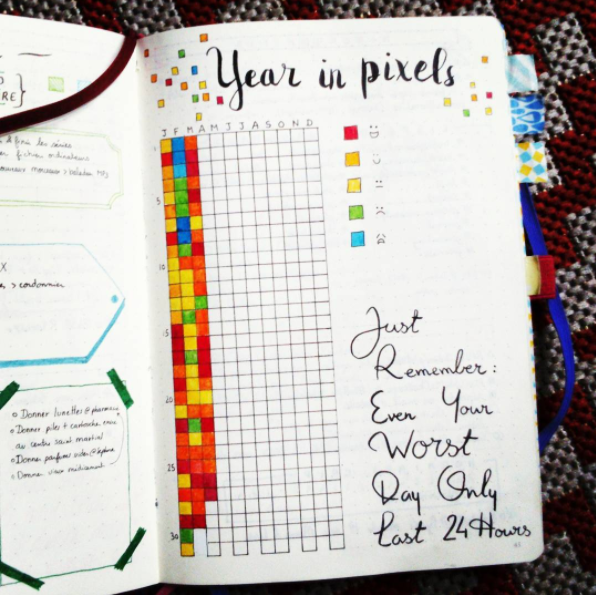 RE}
les séries
fichier ordinateurs
> cordonnier
o Donner lunettes @ pharmacie
o Donner piles + cartouche encre
au centre saint martial
o Donner
o Donner vieux médicament
Year in pixels
J F M A M J J A S O N D
1
5
10
15
20
25
30
:D
:)
:|
:(
Just
Remember:
Even Your
Worst
Day Only
Last 24 Hours